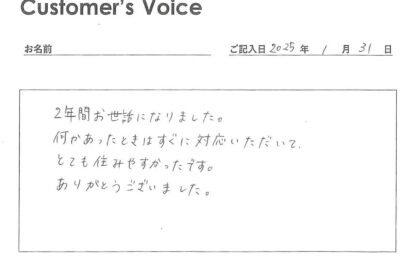 Customer's Voice
お名前
ご記入日 2025 年 1 月 31 日
2年間お世話になりました。
何かあったときはすぐに対応いただいて、
とても住みやすかったです。
ありがとうございました。